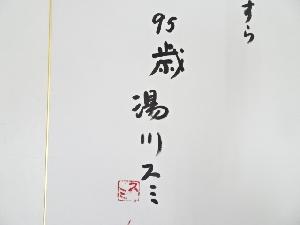 すら
95歳 湯川スミ
スミ